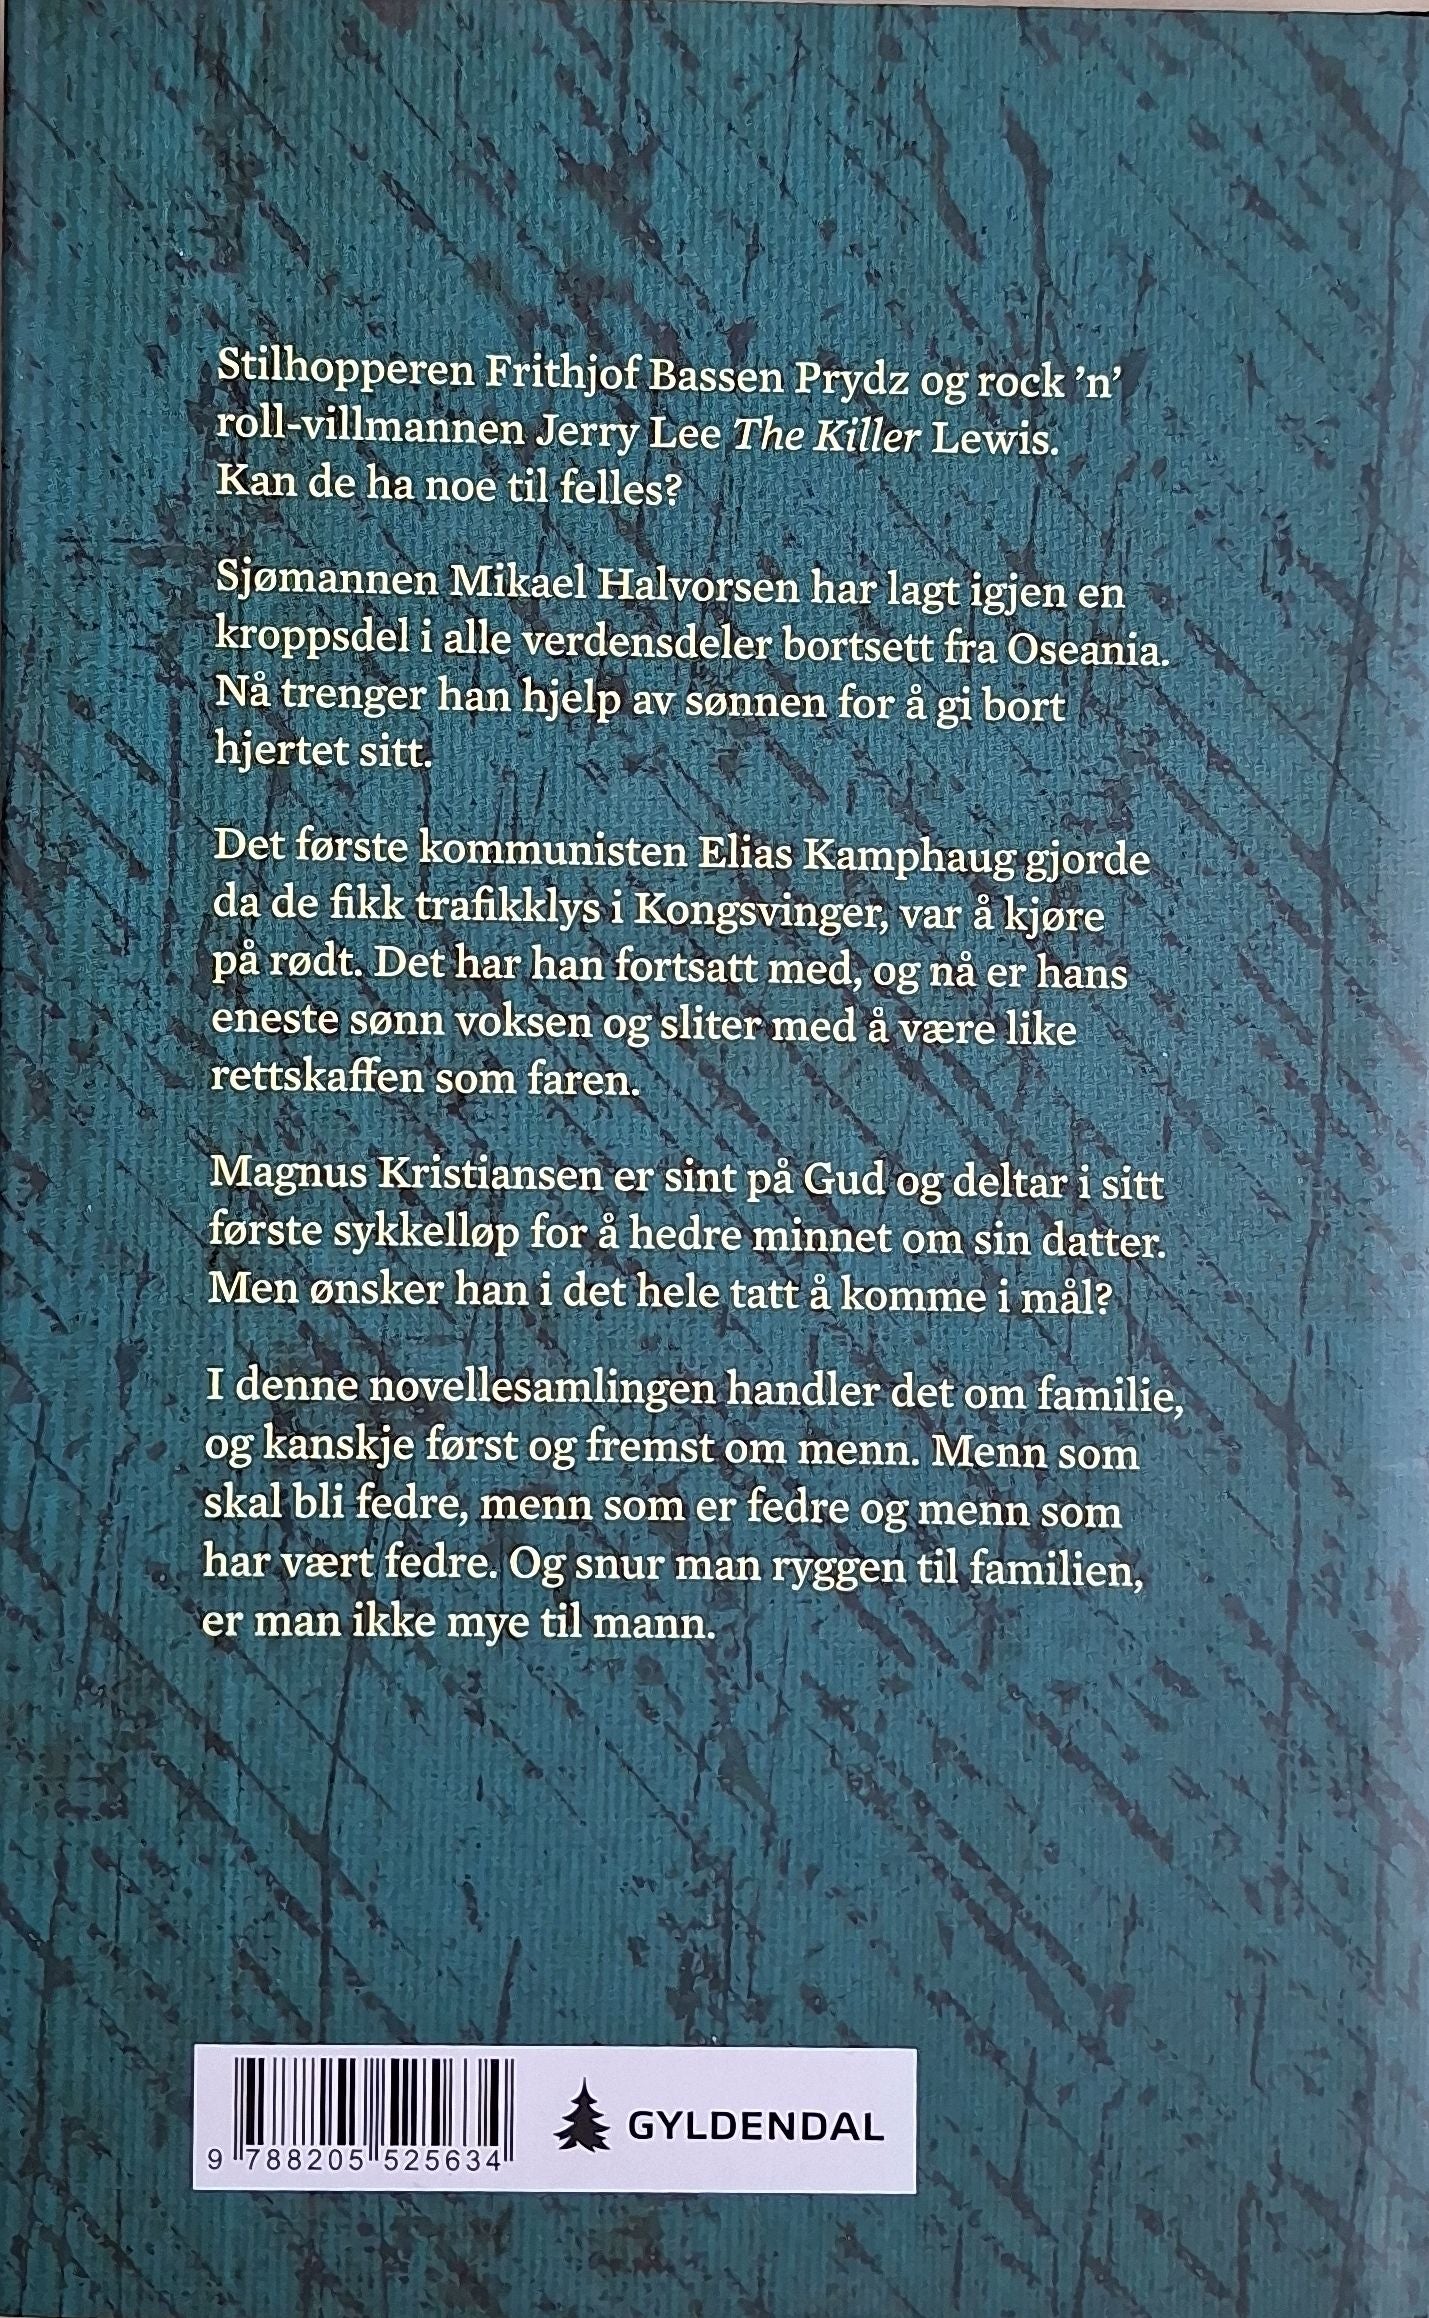 Stilhopperen Frithjof Bassen Prydz og rock ’n’
roll-villmannen Jerry Lee The Killer Lewis.
Kan de ha noe til felles?
Sjømannen Mikael Halvorsen har lagt igjen en
kroppsdel i alle verdensdeler bortsett fra Oseania.
Nå trenger han hjelp av sønnen for å gi bort
hjertet sitt.
Det første kommunisten Elias Kamphaug gjorde
da de fikk trafikklys i Kongsvinger, var å kjøre
på rødt. Det har han fortsatt med, og nå er hans
eneste sønn voksen og sliter med å være like
rettskaffen som faren.
Magnus Kristiansen er sint på Gud og deltar i sitt
første sykkelløp for å hedre minnet om sin datter.
Men ønsker han i det hele tatt å komme i mål?
I denne novellesamlingen handler det om familie,
og kanskje først og fremst om menn. Menn som
skal bli fedre, menn som er fedre og menn som
har vært fedre. Og snur man ryggen til familien,
er man ikke mye til mann.
9 788205 525634
GYLDENDAL